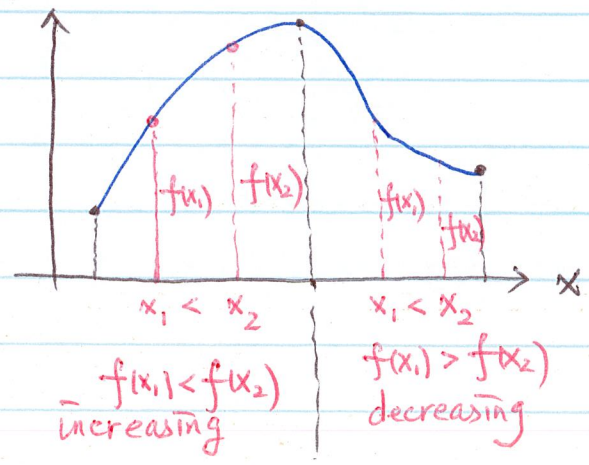 f(x₁)
f(x₂)
f(x₁)
f(x₂)
x
x₁ < x₂
x₁ < x₂
f(x₁) < f(x₂)
increasing
f(x₁) > f(x₂)
decreasing